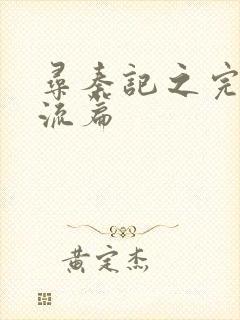 尋秦記之完
流篇
黄定杰